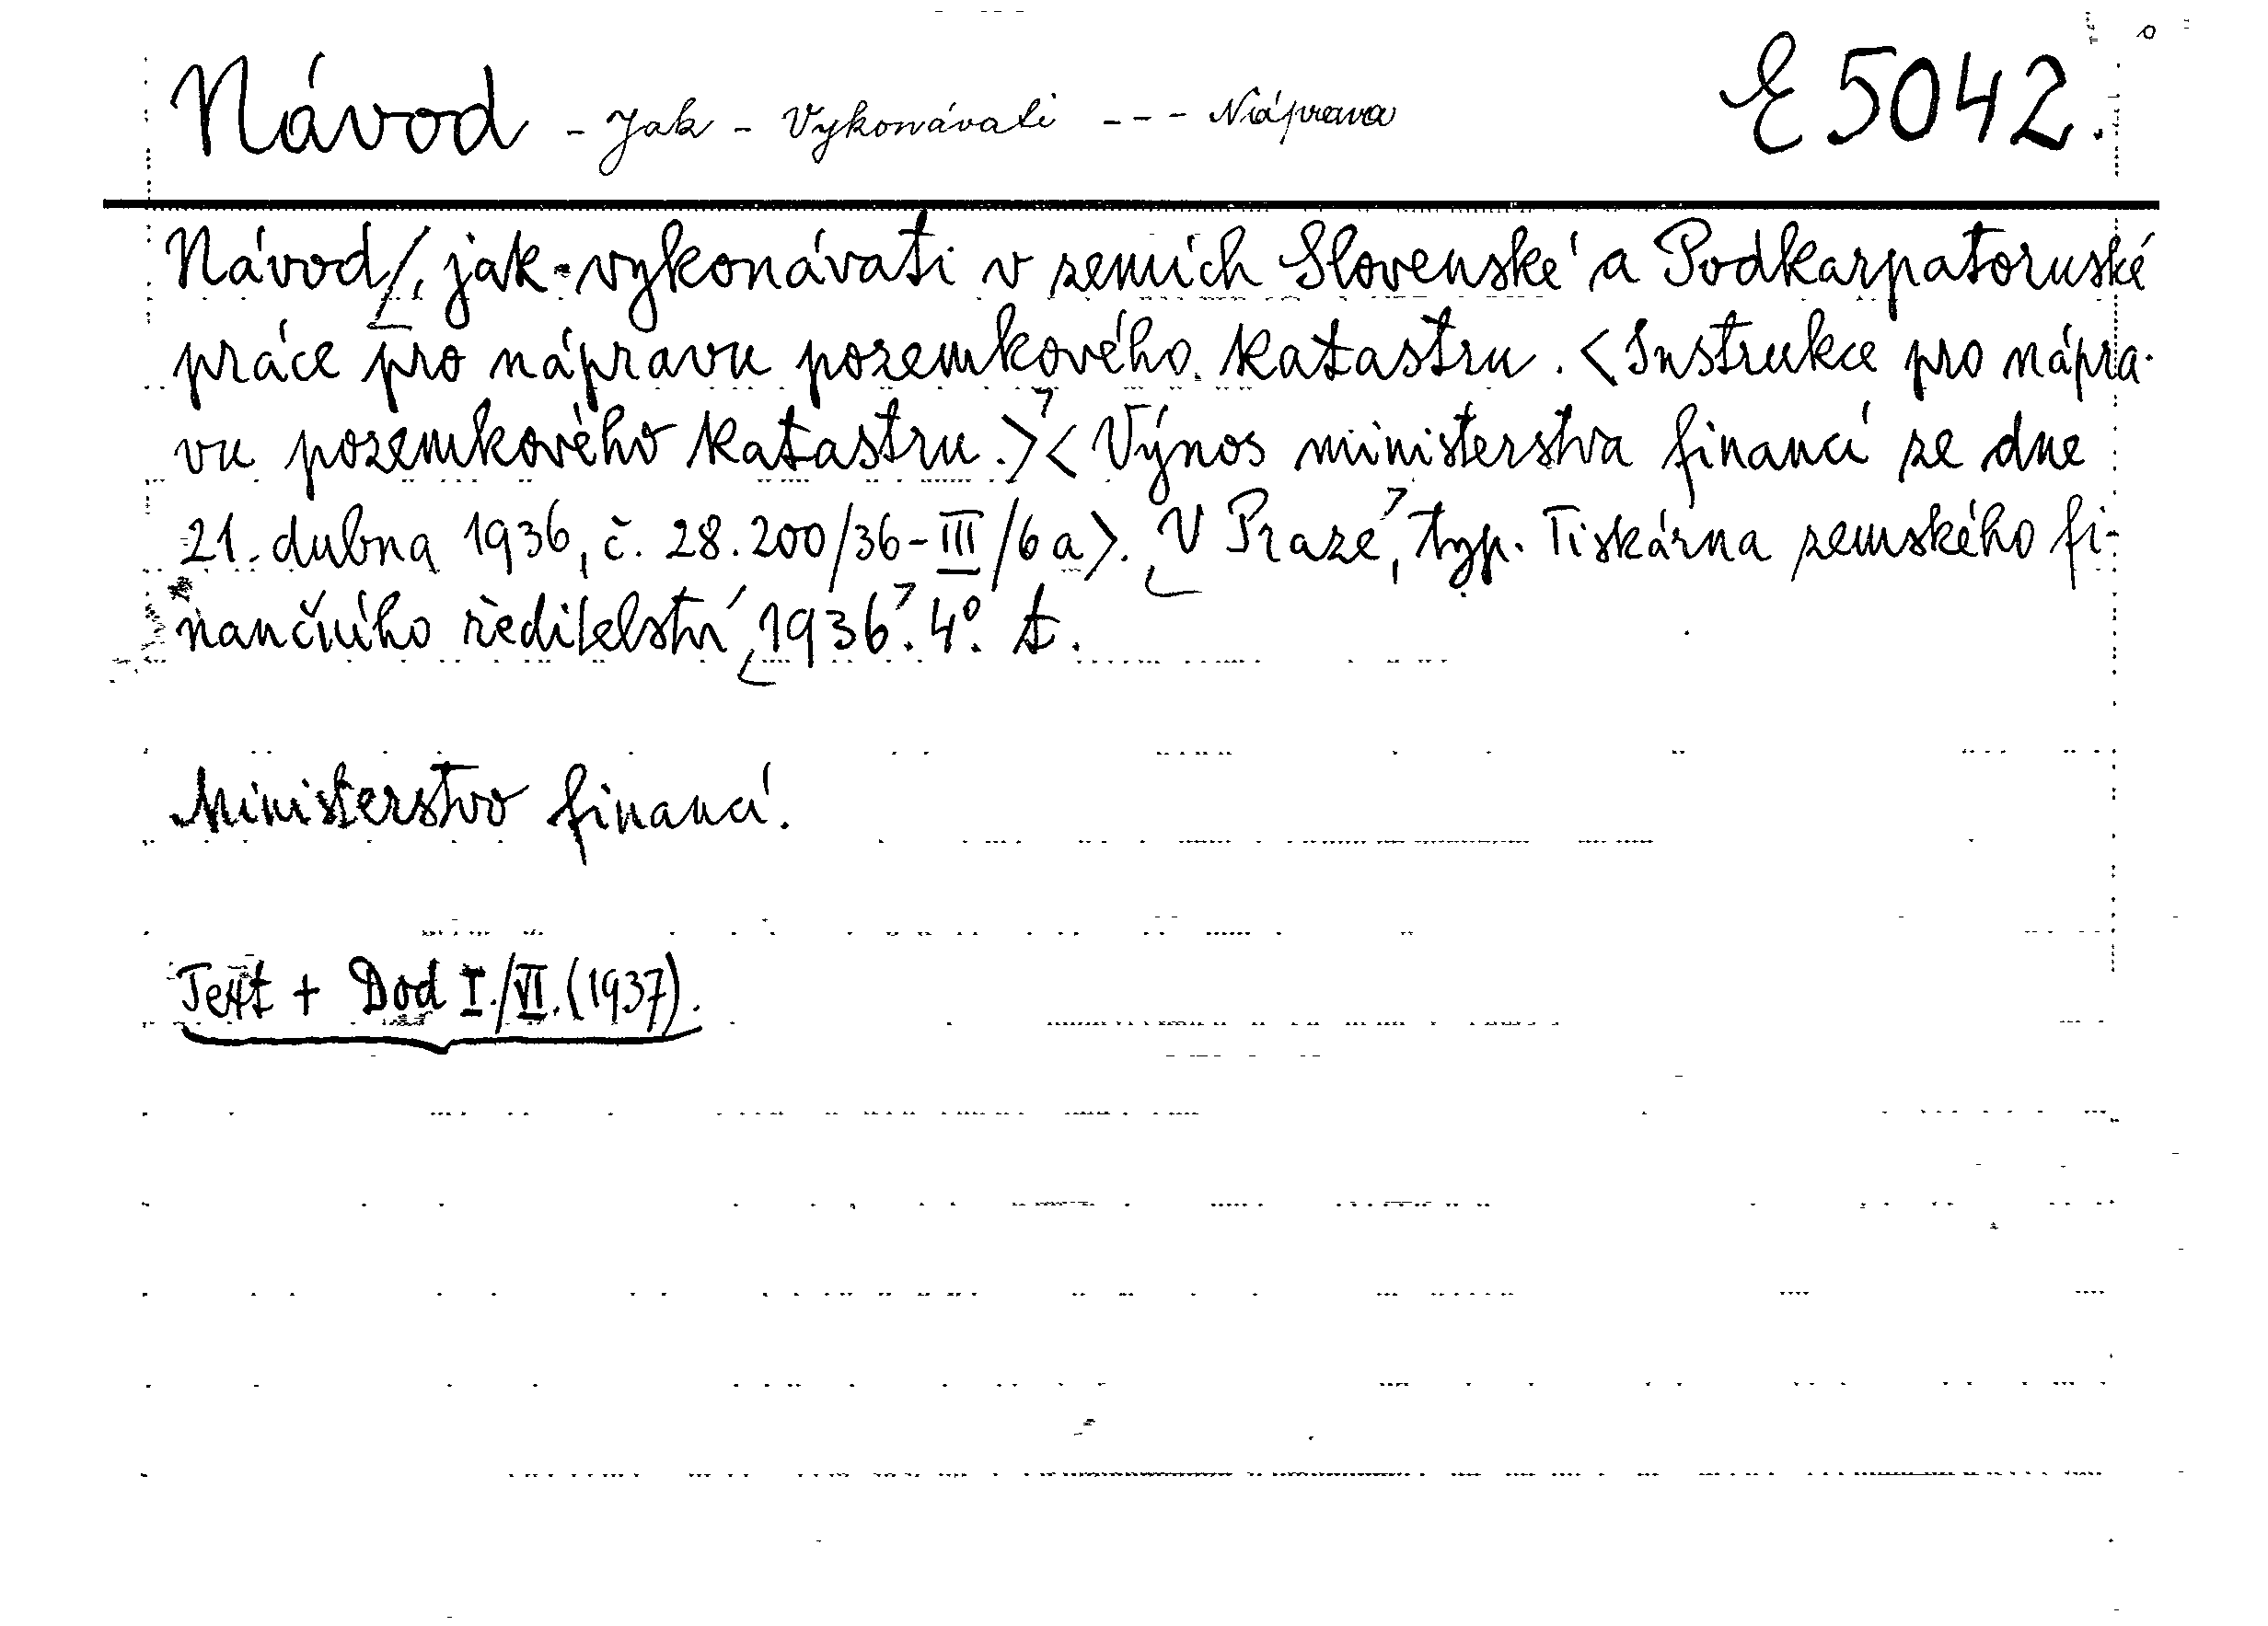 Návod - Jak - Vykonávati - - - Náprava E 5042.
Návod/, jak vykonávati v zemích Slovenské a Podkarpatoruské
práce pro nápravu pozemkového katastru. <Instrukce pro nápra-
vu pozemkového katastru.> <Výnos ministerstva financí ze dne
21. dubna 1936, č. 28.200/36-III/6a>. V Praze, typ. Tiskárna zemského fi-
nančního ředitelství 1936. 4°. t.
Ministerstvo financí.
Text + Dod I./VI. (1937).